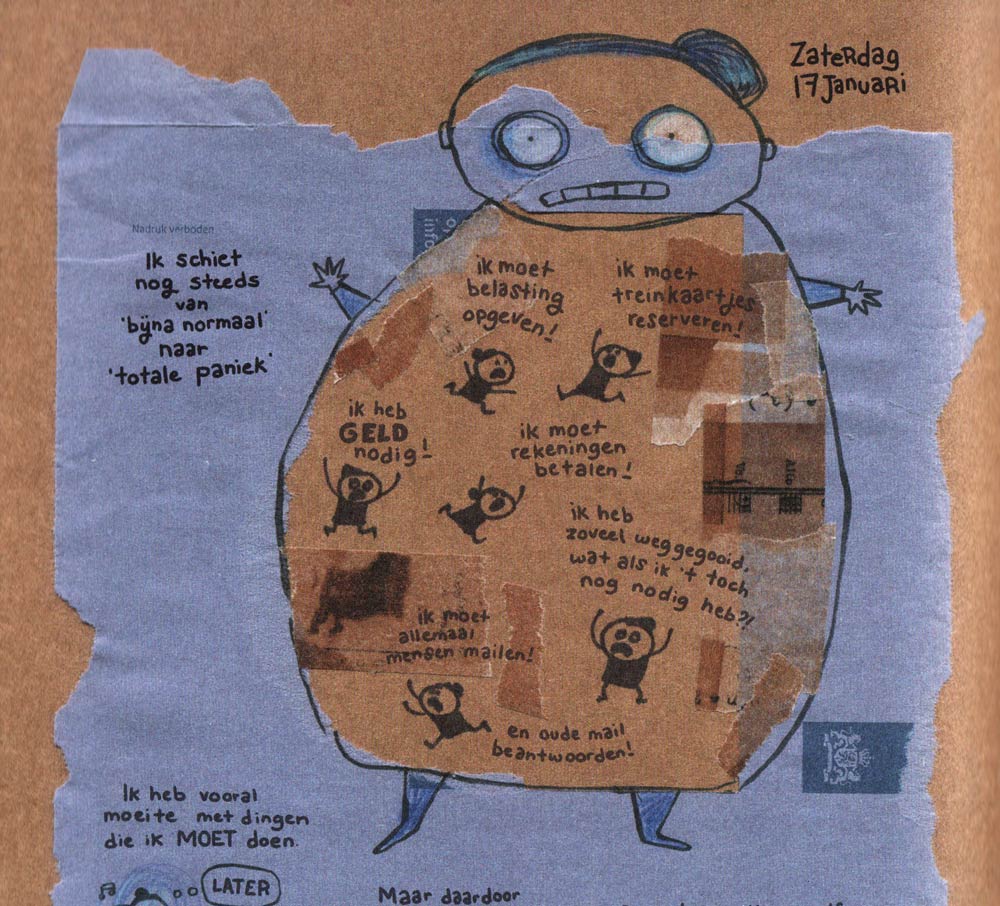 Zaterdag
17 Januari
Nadruk verboden
Ik schiet
nog steeds
van
'bijna normaal'
naar
'totale paniek'
ik moet
belasting
opgeven!
ik moet
treinkaartjes
reserveren!
ik heb
GELD
nodig!
ik moet
rekeningen
betalen!
ik heb
zoveel weggegooid,
wat als ik 't toch
nog nodig heb?!
ik moet
allemaal
mensen mailen!
en oude mail
beantwoorden!
Ik heb vooral
moeite met dingen
die ik MOET doen.
LATER
Maar daardoor